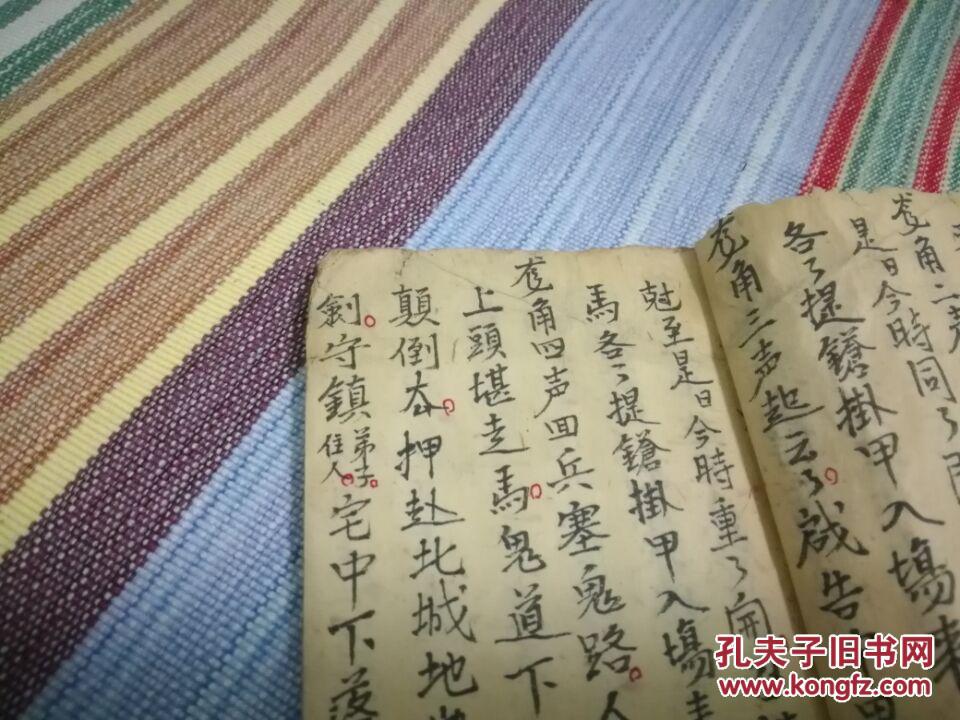 角二声
是日今時同々
各々提鎗掛甲入場
角三声起云々。啟告
至是日今時重々開
馬各々提鎗掛甲入場
角四声回兵塞鬼路。人
上頭堪走馬。鬼道下
顛倒。押赴北城地
劍。守鎮弟子。住人。宅中下落
孔夫子旧书网
www.kongfz.com